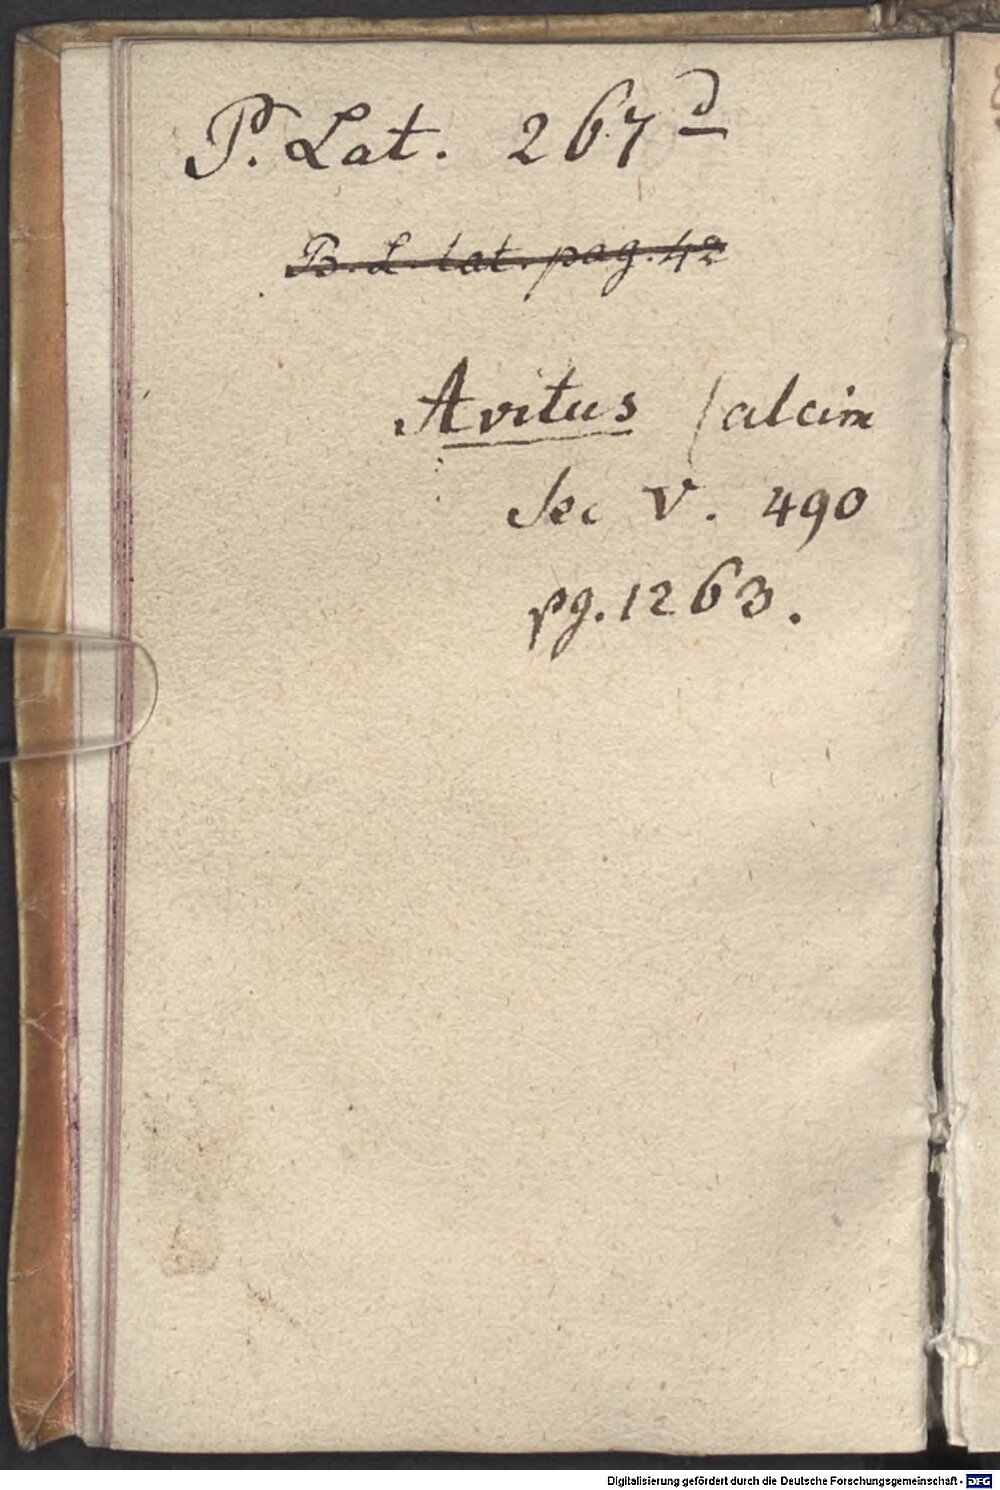 P. Lat. 267 d
B. L. lat. pag. 42
Avitus (alcim
Sec V. 490
pg. 1263.
Digitalisierung gefördert durch die Deutsche Forschungsgemeinschaft - DFG